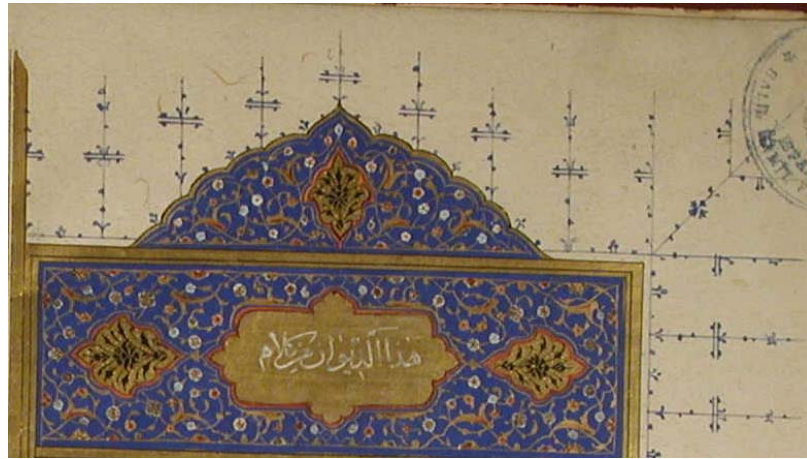 هذا الديوان من كلام